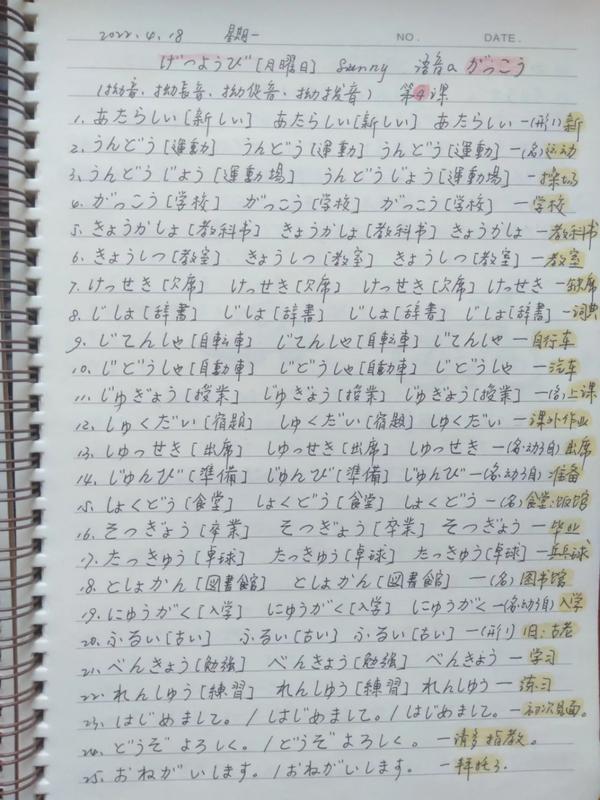 2022.4.18 星期一 NO. DATE.
げつようび[月曜日] Sunny 语音a がっこう
(拗音、拗長音、拗促音、拗拨音) 第4课
1. あたらしい[新しい] あたらしい[新しい] あたらしい—(形1)新
2. うんどう[運動] うんどう[運動] うんどう[運動]—(名)运动
3. うんどうじょう[運動場] うんどうじょう[運動場]—操场
4. がっこう[学校] がっこう[学校] がっこう[学校]—学校
5. きょうかしょ[教科书] きょうかしょ[教科书] きょうかしょ—教科书
6. きょうしつ[教室] きょうしつ[教室] きょうしつ[教室]—教室
7. けっせき[欠席] けっせき[欠席] けっせき[欠席] けっせき—缺席
8. じしょ[辞書] じしょ[辞書] じしょ[辞書] じしょ[辞書]—词典
9. じてんしゃ[自転車] じてんしゃ[自転車] じてんしゃ—自行车
10. じどうしゃ[自動車] じどうしゃ[自動車] じどうしゃ—汽车
11. じゅぎょう[授業] じゅぎょう[授業] じゅぎょう[授業]—(名)上课
12. しゅくだい[宿題] しゅくだい[宿題] しゅくだい—课外作业
13. しゅっせき[出席] しゅっせき[出席] しゅっせき—(名·动3自)出席
14. じゅんび[準備] じゅんび[準備] じゅんび—(名·动3自)准备
15. しょくどう[食堂] しょくどう[食堂] しょくどう—(名)食堂;饭馆
16. そつぎょう[卒業] そつぎょう[卒業] そつぎょう—毕业
17. たっきゅう[卓球] たっきゅう[卓球] たっきゅう[卓球]—乒乓球
18. としょかん[図書館] としょかん[図書館]—(名)图书馆
19. にゅうがく[入学] にゅうがく[入学] にゅうがく—(名·动3自)入学
20. ふるい[古い] ふるい[古い] ふるい[古い]—(形1)旧;古老
21. べんきょう[勉強] べんきょう[勉強] べんきょう—学习
22. れんしゅう[練習] れんしゅう[練習] れんしゅう—练习
23. はじめまして。/はじめまして。/はじめまして。—初次见面。
24. どうぞよろしく。/どうぞよろしく。—请多指教。
25. おねがいします。/おねがいします。—拜托了.